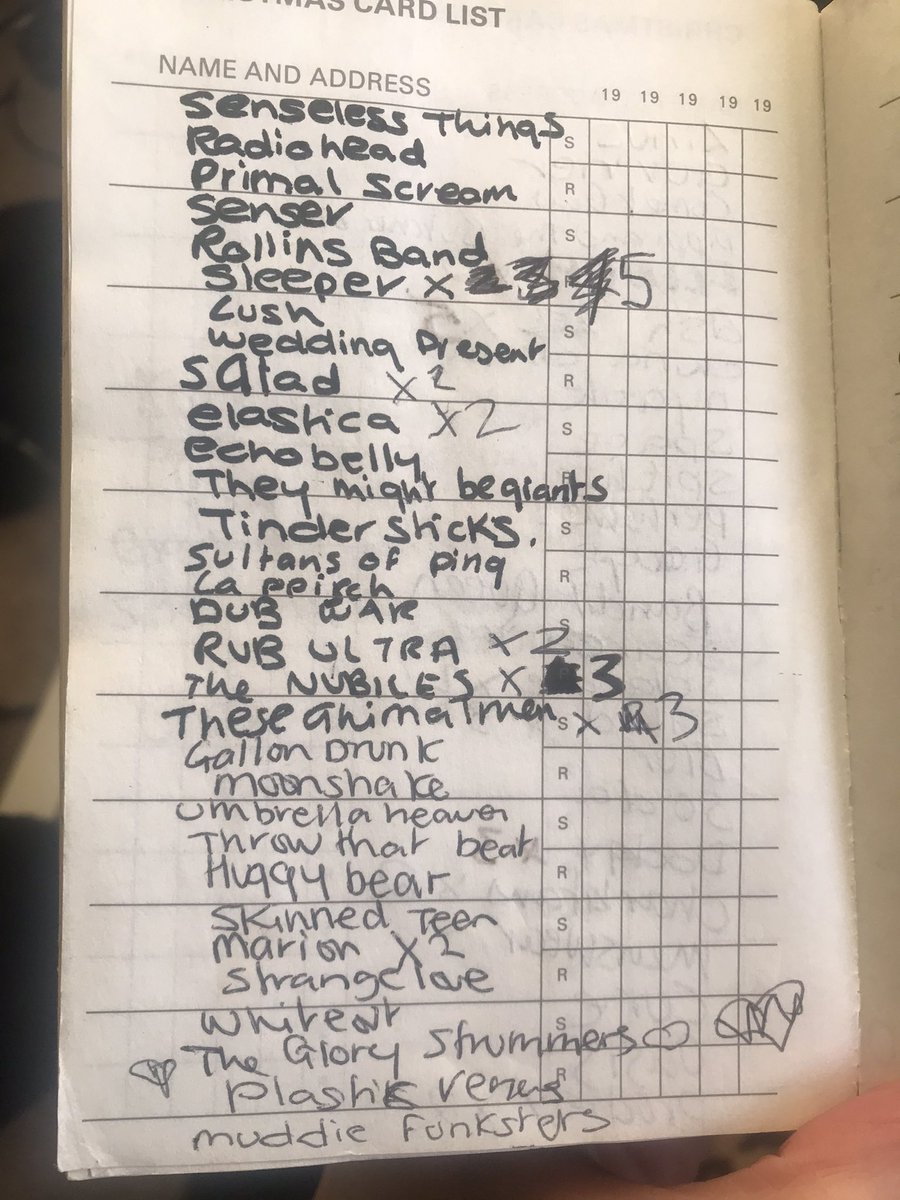 CHRISTMAS CARD LIST
NAME AND ADDRESS 19 19 19 19 19
Senseless Things S
Radiohead
Primal Scream R
Senser
Rollins Band S
Sleeper x 5
Lush
Wedding Present S
Salad x2 R
elastica x2 S
echobelly
They might be giants R
Tindersticks. S
Sultans of ping
R
DUB WAR
RUB ULTRA x2 S
The NUBILES x 3
These animal men S x 3
Gallon Drunk
moonshake R
Umbrella heaven
Throw that beat S
Huggy bear R
Skinned Teen S
Marion x2
Strangelove R
Whiteout S
The Glory Strummers
Plastic Venus R
muddie funksters